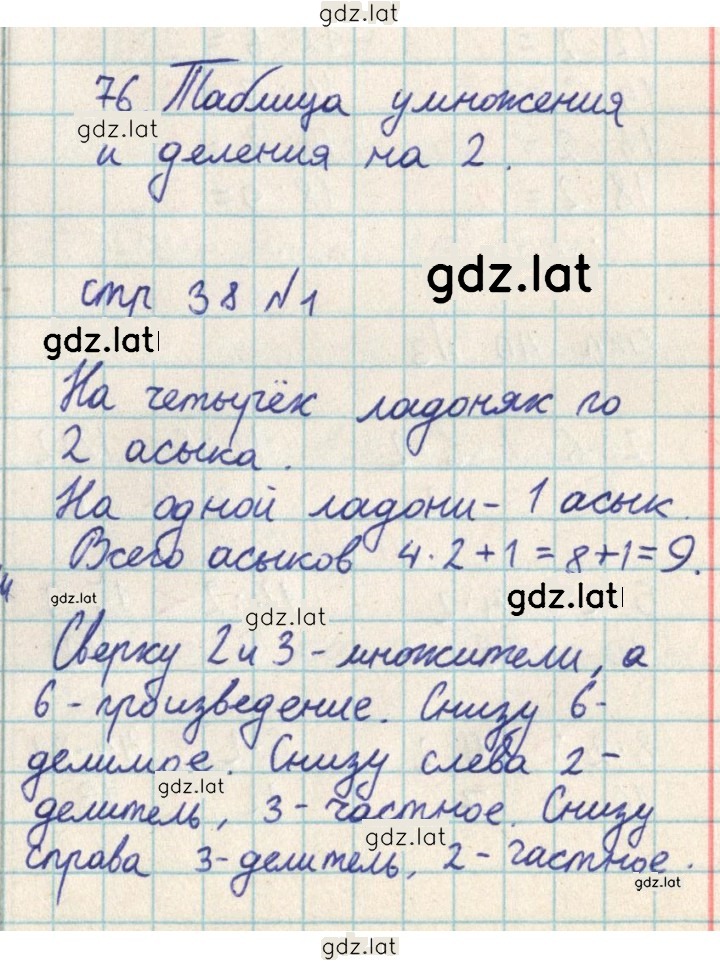 gdz.lat
76 Таблица умножения
gdz.lat
и деления на 2.
gdz.lat
стр 38 №1
gdz.lat
На четырёх ладонях по
2 асыка.
На одной ладони - 1 асык.
Всего асыков 4·2+1=8+1=9.
gdz.lat
gdz.lat
gdz.lat
Сверху 2 и 3 - множители, а
6 - произведение. Снизу 6-
делимое. Снизу слева 2-
gdz.lat
делитель, 3 - частное. Снизу
gdz.lat
справа 3-делитель, 2 - частное.
gdz.lat
gdz.lat